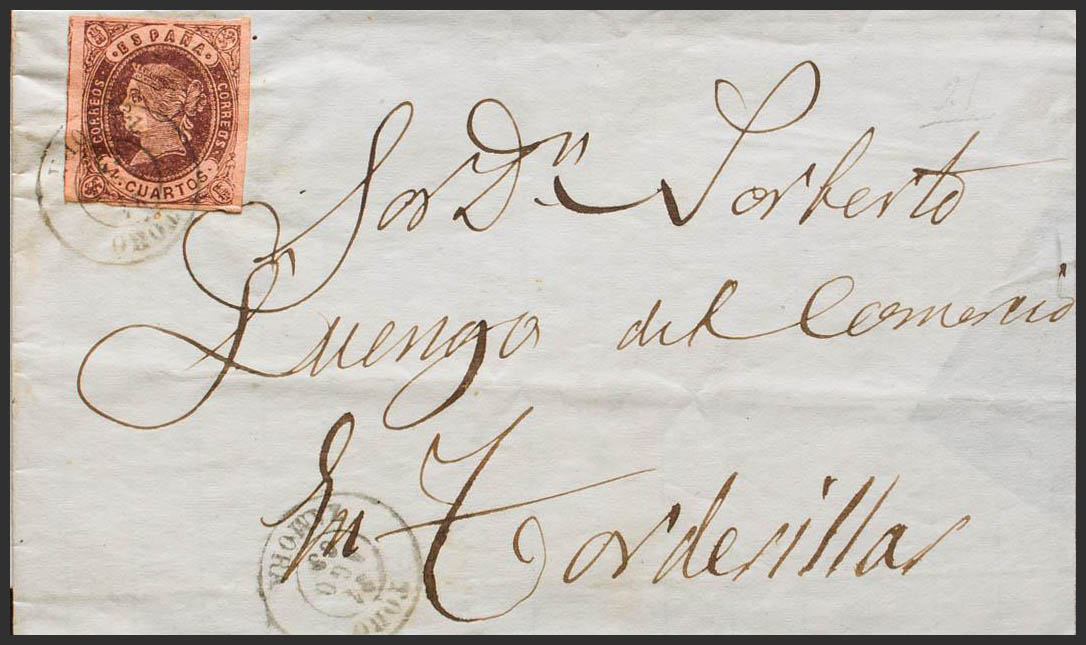 ESPAÑA
CORREOS
CORREOS
4. CUARTOS.
TORO
Sor Dn Norberto
Luengo del Comercio
En Tordesillas
TORO
ZAMORA
AGO